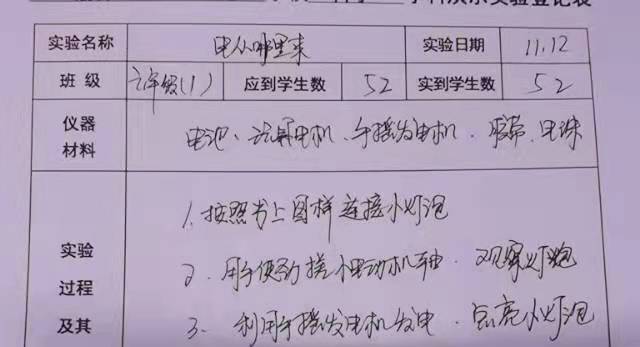 学科演示实验登记表
实验名称 电从哪里来 实验日期 11.12
班 级 六年级(1) 应到学生数 52 实到学生数 52
仪器材料 电池、玩具电机、手摇发电机、胶带、电珠
实验过程及其
1、按照书上图样连接小灯泡
2、用手使劲搓小电动机轴、观察灯炮
3、利用手摇发电机发电、点亮小灯泡